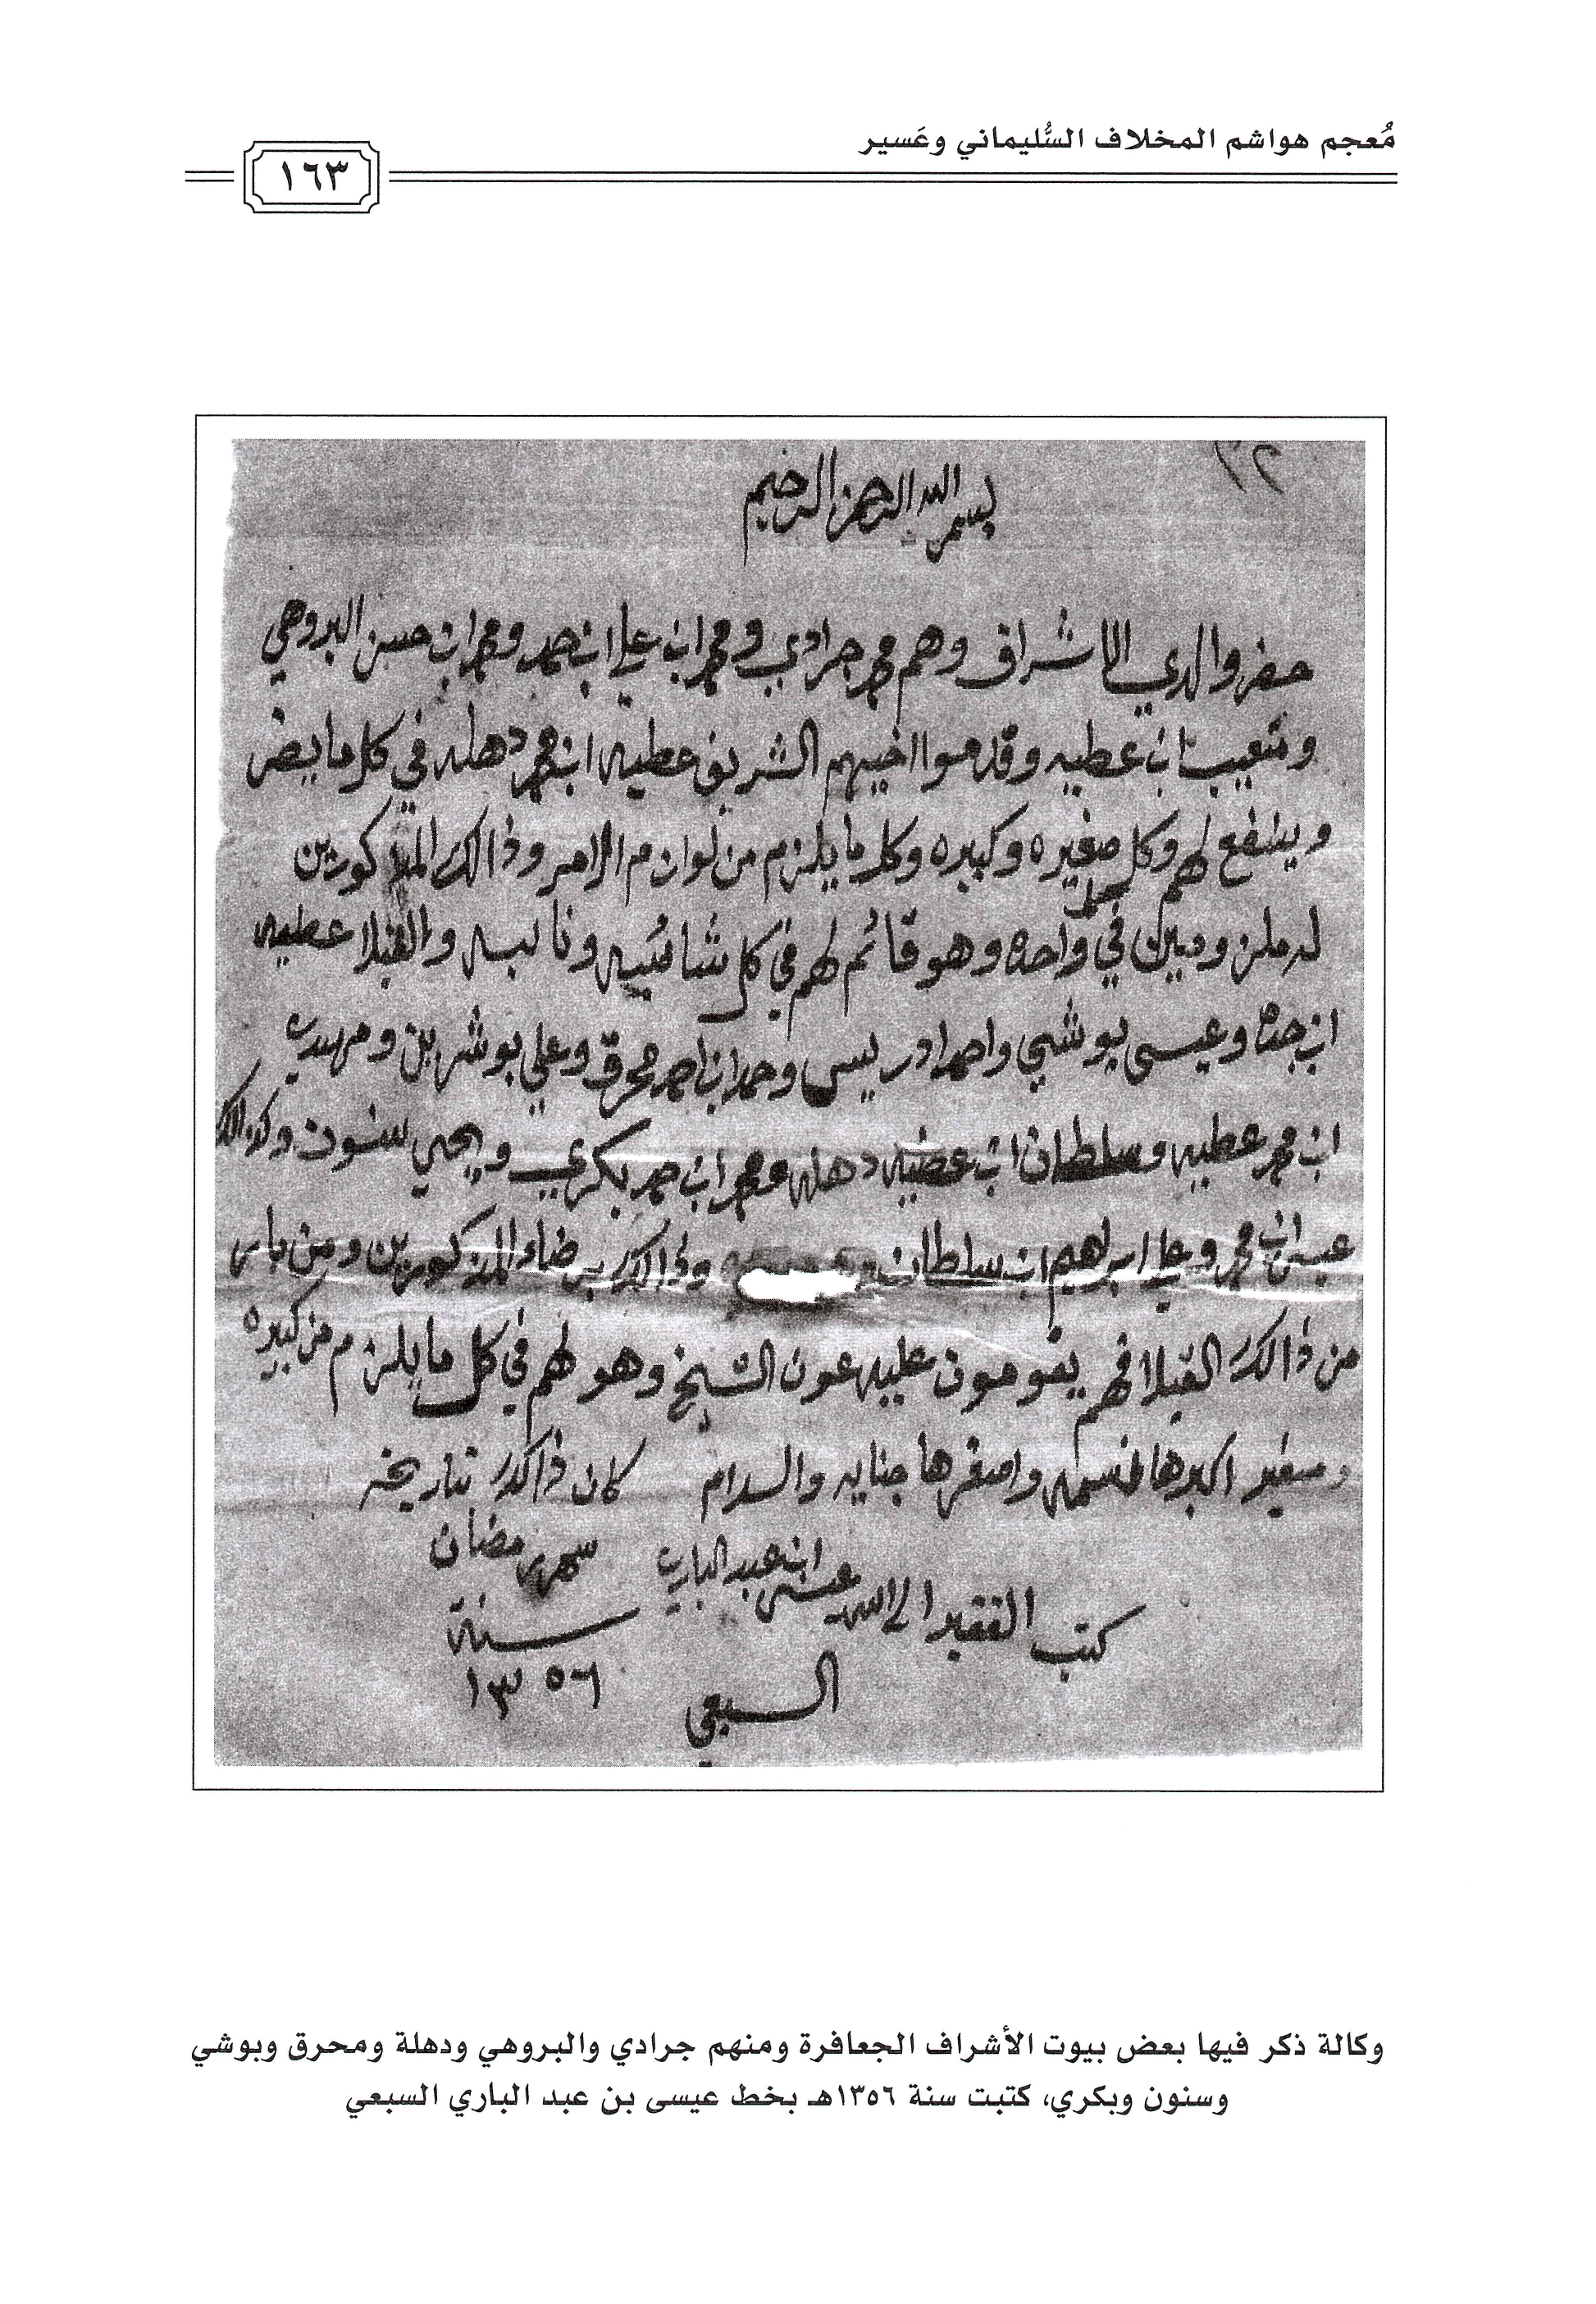 مُعجم هواشم المخلاف السُّليماني وعَسير
١٦٣
٣٢
بسم الله الرحمن الرحيم
حضر والدي الاشراف وهم محمد جرادي ومحمد ابن علي ابن حمد ومحمد ابن حسن البروهي
ابن عطيه وقدموا اخيهم الشريف عطيه ابن محمد دهله في كل ما يضر
وينفع لهم وكل صغيره وكبيره وكل ما يلزم من لوازم الامر وذالك المذكورين
في واحده وهو قائم لهم في كل ونايبه والقبلا عطيه
ابن وعيسى بوشي واحمد ادريس وحمد ابن احمد محرق وعلي
ابن محمد عطيه وسلطان ابن عطيه دهله ومحمد ابن حمد بكري ويحيى سنون وكذالك
ابن محمد وعلي ابراهيم ابن سلطان وذالك برضاء المذكورين ومن
من ذالك القبلا فهم يقومون عليه عون الشيخ وهو لهم في كل ما يلزم من كبيره
وصغير اكبرها واصغرها جنايه والسلام كان ذالك بتاريخه
شهر رمضان
سنة
١٣٥٦
كتب الفقير الى الله عيسى ابن عبد الباري
السبعي
وكالة ذكر فيها بعض بيوت الأشراف الجعافرة ومنهم جرادي والبروهي ودهلة ومحرق وبوشي
وسنون وبكري، كتبت سنة ١٣٥٦هـ بخط عيسى بن عبد الباري السبعي